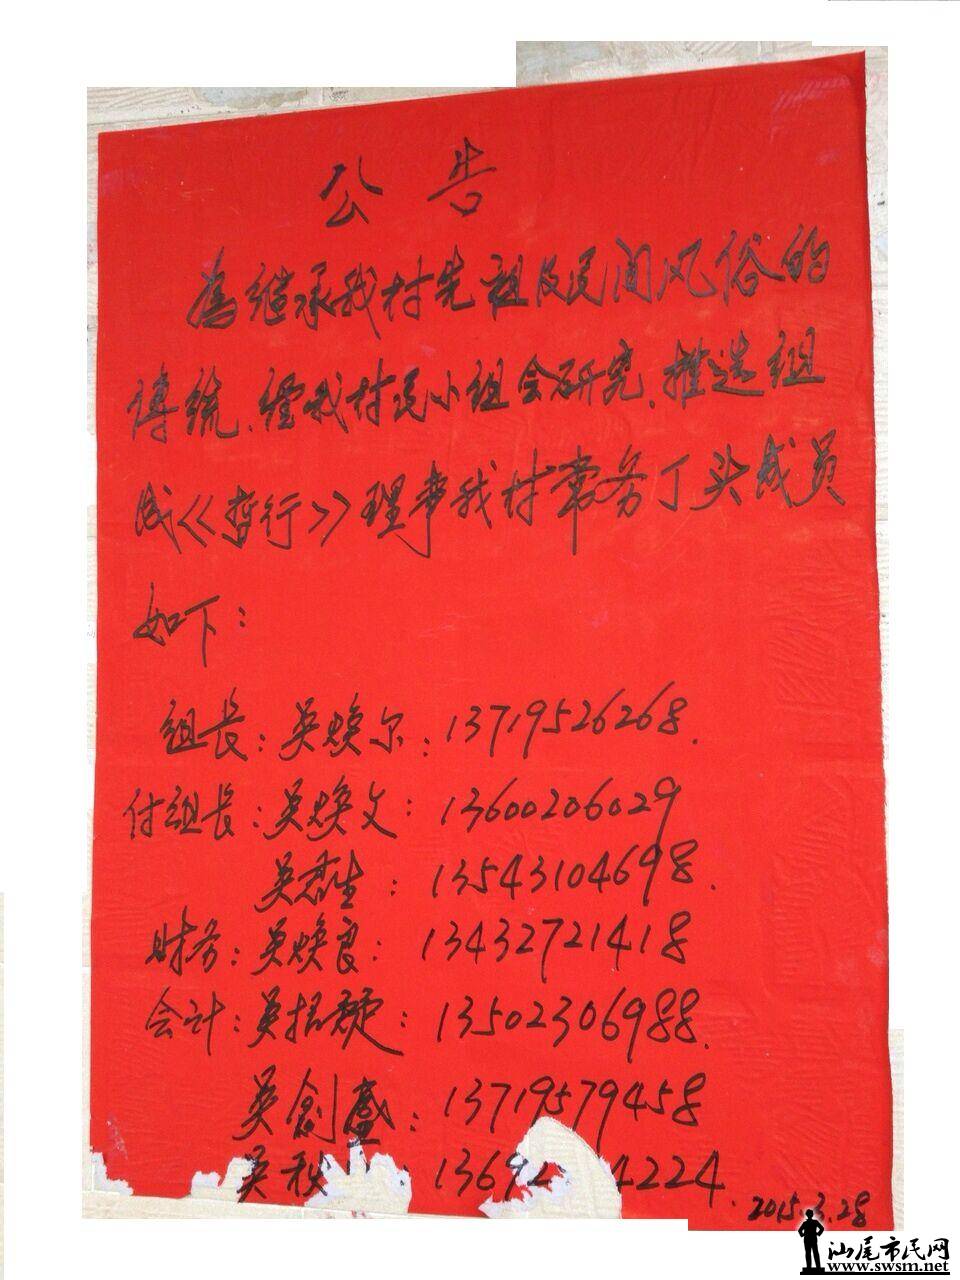 公告
为继承我村先祖及民间风俗的
传统、经我村民小组会研究、推选组
成《暂行》理事我村常务丁头成员
如下：
组长：吴焕尔：13719526268.
付组长：吴焕文：13600206029
吴君生：13543104698.
财务：吴焕良：13432721418
会计：吴招：13502306988.
吴创盛：13719579458
吴秋：1369 4224.
2015.3.28
汕尾市民网
www.swsm.net